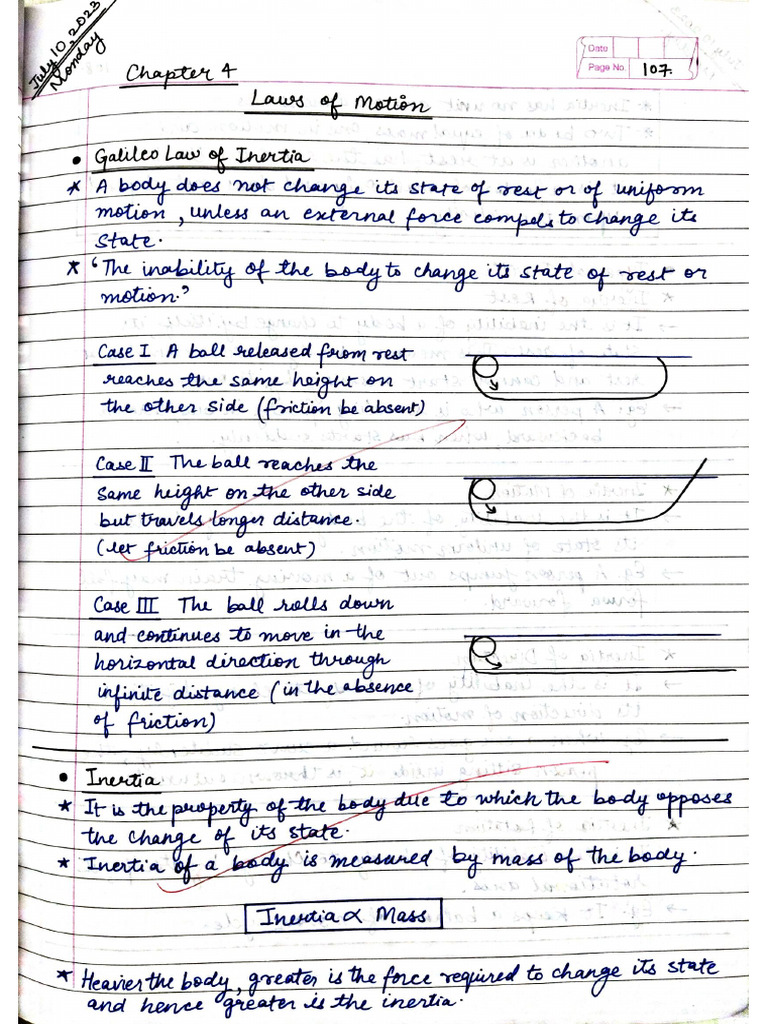 July 10, 2023
Monday
Date
Page No. 107.
Chapter 4
Laws of Motion
• Galileo Law of Inertia
* A body does not change its state of rest or of uniform
motion, unless an external force compels to change its
state.
* 'The inability of the body to change its state of rest or
motion.'
Case I A ball released from rest
reaches the same height on
the other side (friction be absent)
Case II The ball reaches the
same height on the other side
but travels longer distance.
(let friction be absent)
Case III The ball rolls down
and continues to move in the
horizontal direction through
infinite distance (in the absence
of friction)
• Inertia
* It is the property of the body due to which the body opposes
the change of its state.
* Inertia of a body is measured by mass of the body.
Inertia ∝ Mass
* Heavier the body, greater is the force required to change its state
and hence greater is the inertia.